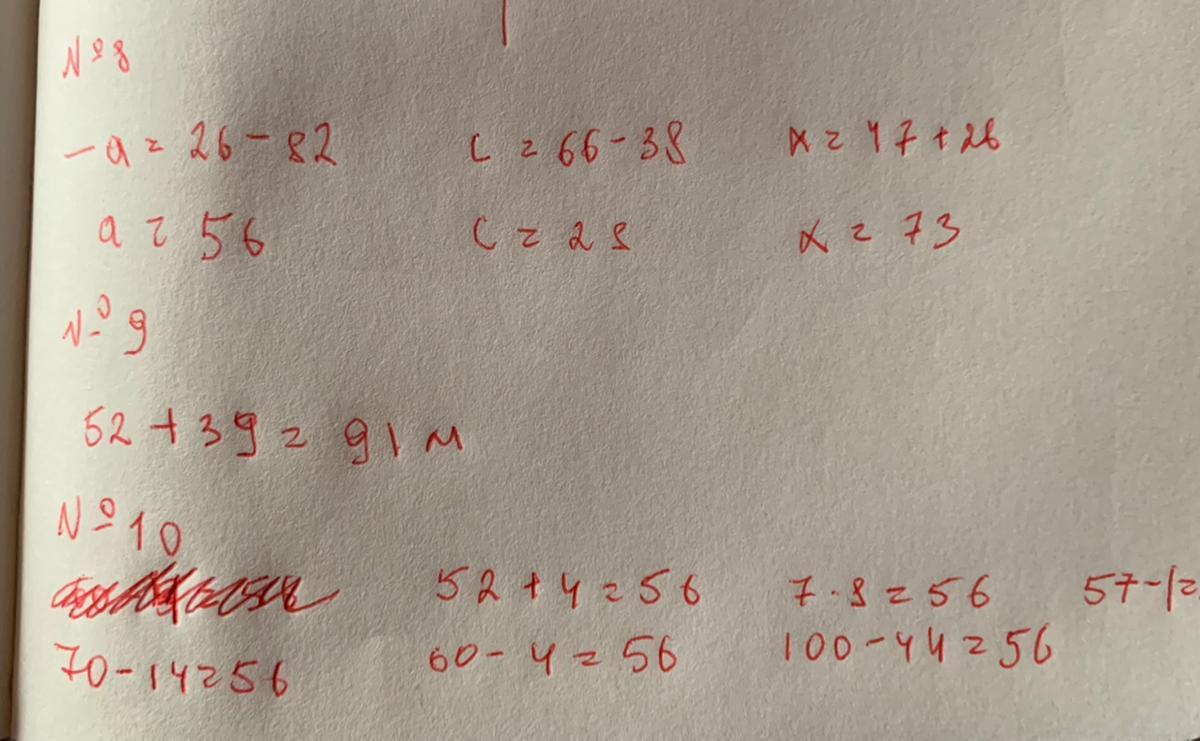 № 8
-a = 26 - 82 c = 66 - 38 x = 47 + 26
a = 56 c = 28 x = 73
№ 9
52 + 39 = 91 м
№ 10
52 + 4 = 56 7 · 8 = 56 57 - 1 =
70 - 14 = 56 60 - 4 = 56 100 - 44 = 56